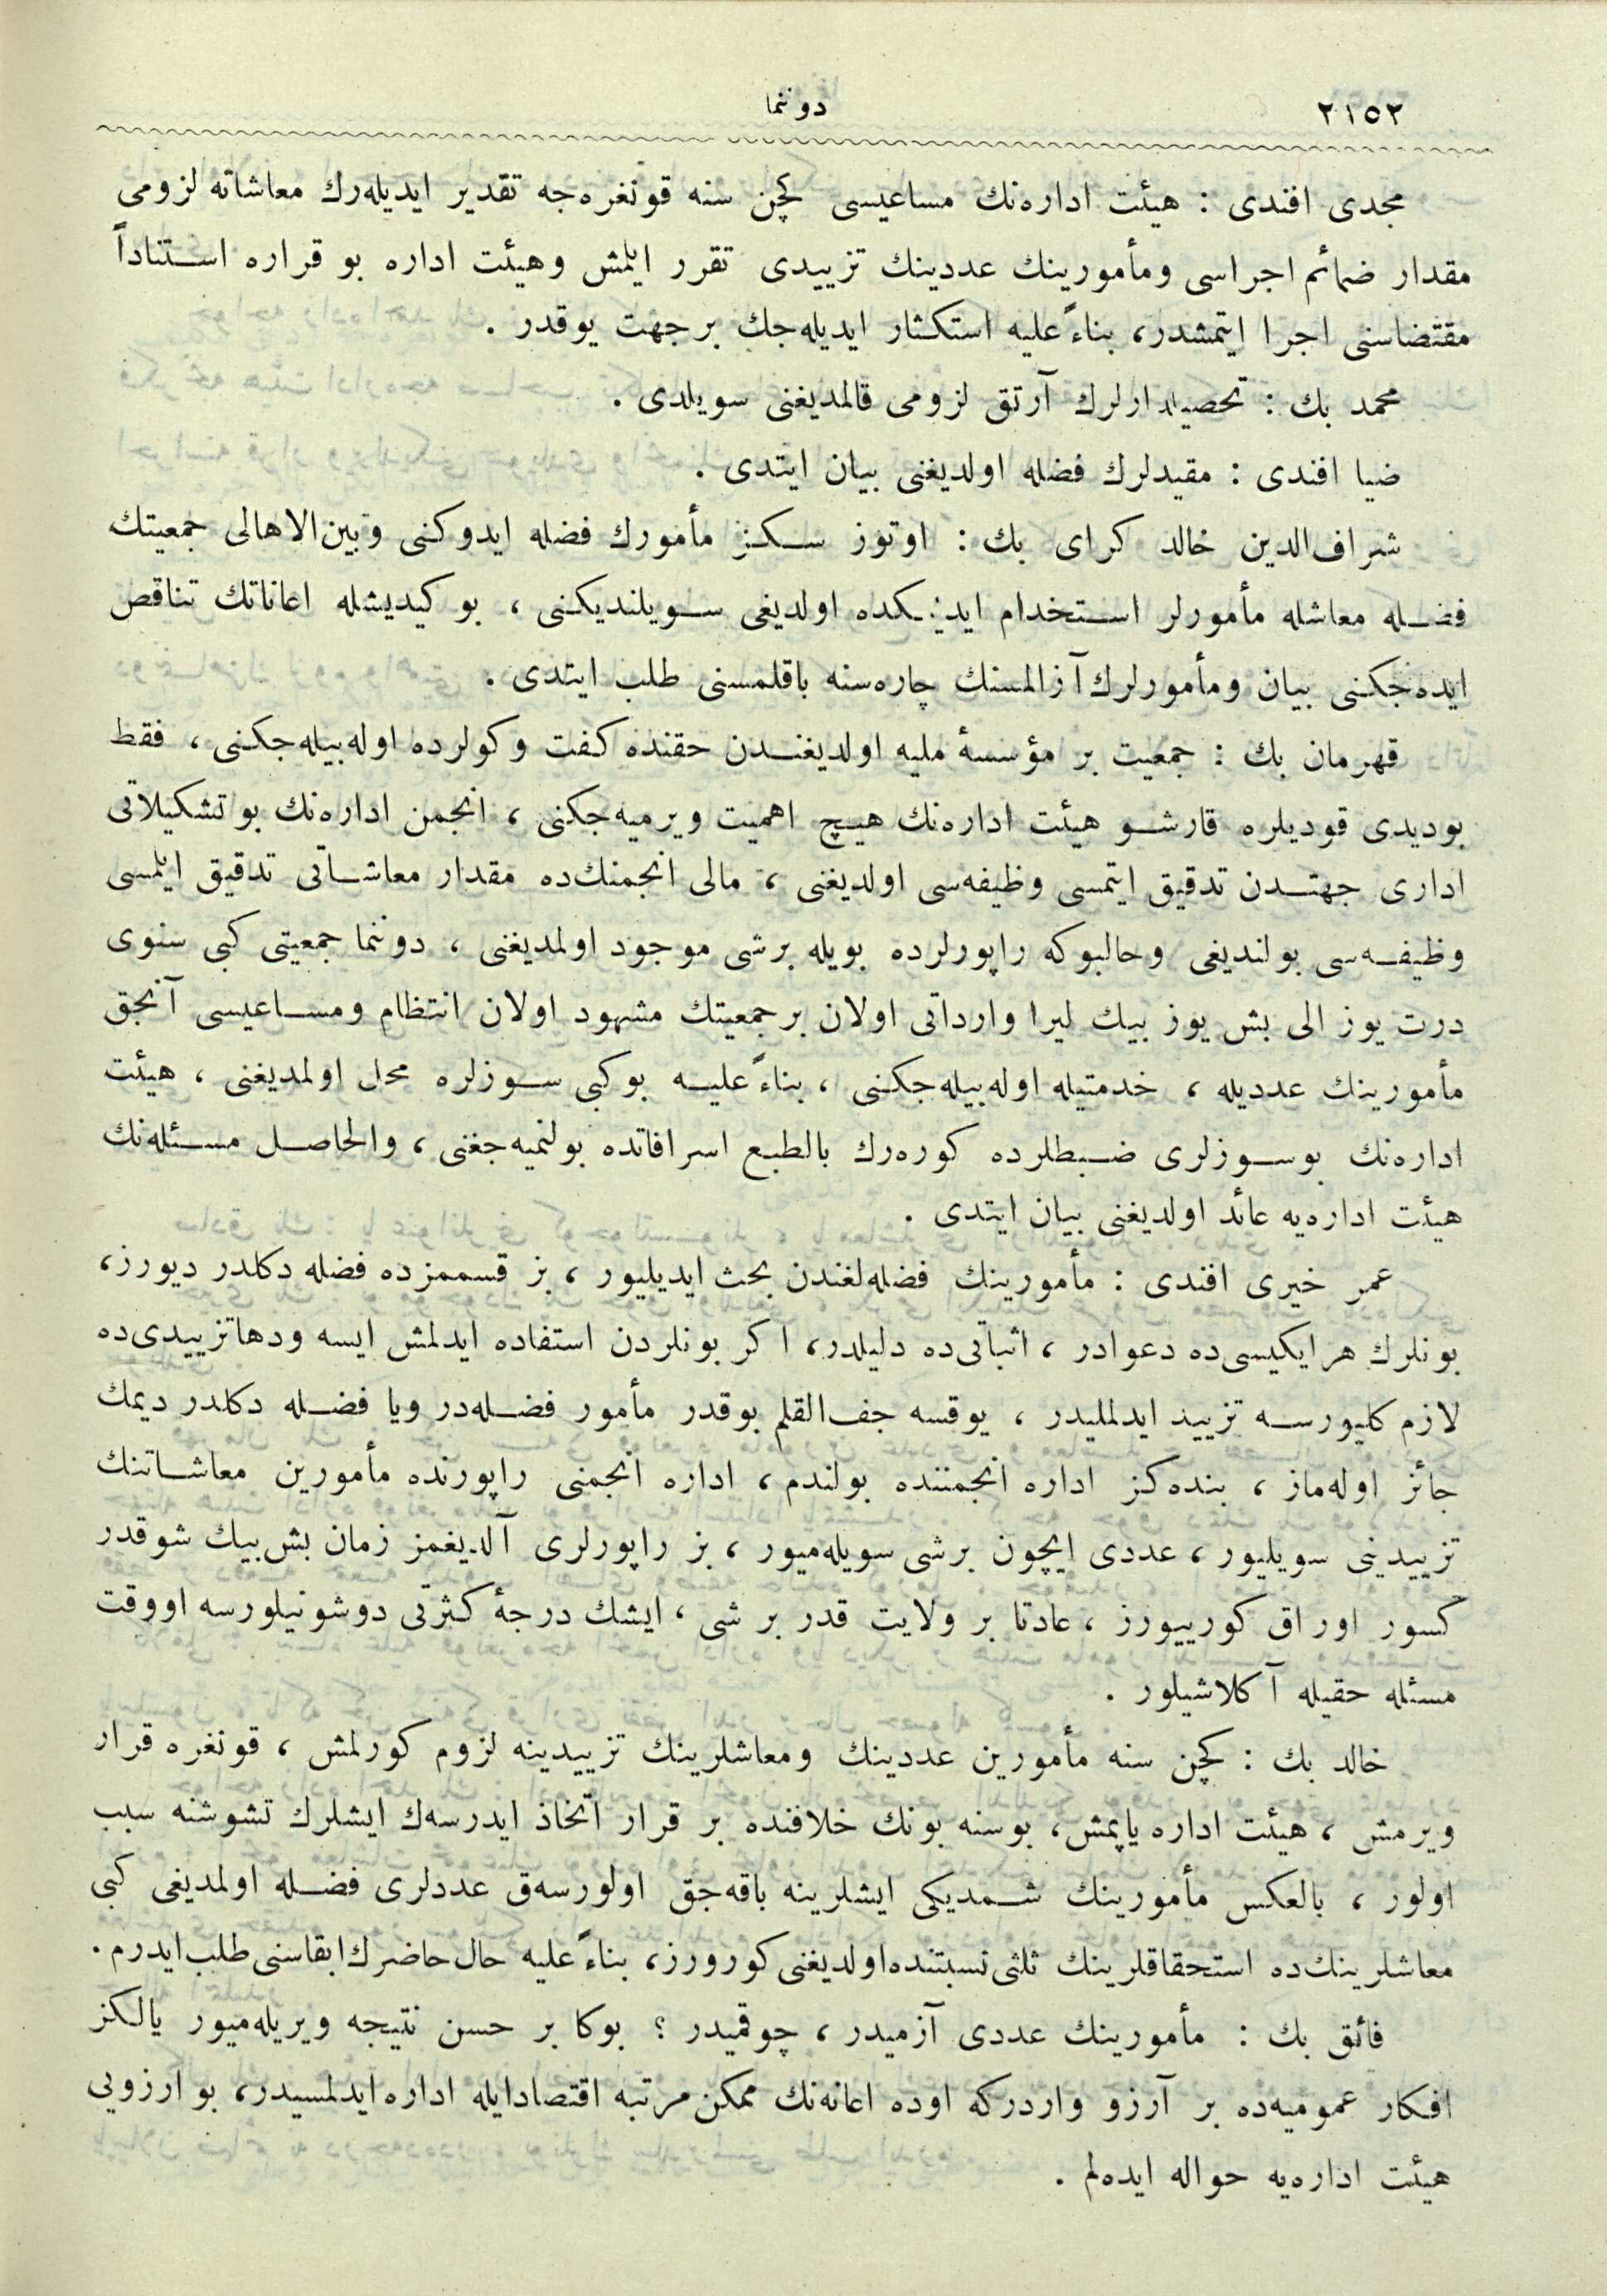 ٢١٥٢
دوننما
مجدی افندی : هیئت اداره‌نك مساعیسی كچن سنه قونغره‌جه تقدیر ایدیله‌رك معاشاته لزومی
مقدار ضمائم اجراسی ومأمورینك عددینك تزییدی تقرر ایلمش وهیئت اداره بو قراره استناداً
مقتضاسنی اجرا ایتمشدر، بناءً علیه استكثار ایدیله‌جك بر جهت یوقدر .
محمد بك : تحصیلدارلرك آرتق لزومی قالمدیغنی سویلدی .
ضیا افندی : مقیدلرك فضله اولدیغنی بیان ایتدی .
شراف‌الدین خالد كرای بك : اوتوز سكز مأمورك فضله ایدوكنی وبین‌الاهالی جمعیتك
فضله معاشله مأمورلر استخدام ایدیلمكده اولدیغی سویلندیكنی ، بو كیدیشله اعاناتك تناقص
ایده‌جكنی بیان ومأمورلرك آزالمسنك چاره‌سنه باقلمسنی طلب ایتدی .
قهرمان بك : جمعیت بر مؤسسهٔ ملیه اولدیغندن حقنده كفت وكولرده اوله‌بیله‌جكنی ، فقط
بودیدی قودیلره قارشو هیئت اداره‌نك هیچ اهمیت ویرمیه‌جكنی ، انجمن اداره‌نك بوتشكیلاتی
اداری جهتدن تدقیق ایتمسی وظیفه‌سی اولدیغنی ، مالی انجمنك‌ده مقدار معاشاتی تدقیق ایلمسی
وظیفه‌سی بولندیغی وحالبوكه راپورلرده بویله برشی موجود اولمدیغنی ، دوننما جمعیتی كبی سنوی
درت یوز الی بش یوز بیك لیرا وارداتی اولان برجمعیتك مشهود اولان انتظام ومساعیسی آنجق
مأمورینك عددیله ، خدمتیله اوله‌بیله‌جكنی ، بناءً علیه بوكبی سوزلره محل اولمدیغنی ، هیئت
اداره‌نك بوسوزلری ضبطلرده كوره‌رك بالطبع اسرافاتده بولنمیه‌جغنی ، والحاصل مسئله‌نك
هیئت اداره‌یه عائد اولدیغنی بیان ایتدی .
عمر خیری افندی : مأمورینك فضله‌لغندن بحث ایدیلیور ، بز قسممزده فضله دكلدر دیورز،
بونلرك هرایكیسی‌ده دعوادر ، اثباتی‌ده دلیلدر، اكر بونلردن استفاده ایدلمش ایسه ودهاتزییدی‌ده
لازم كلیورسه تزیید ایدلملیدر ، یوقسه جف‌القلم بوقدر مأمور فضله‌در ویا فضله دكلدر دیمك
جائز اوله‌ماز ، بنده‌كز اداره انجمننده بولندم ، اداره انجمنی راپورنده مأمورین معاشاتنك
تزییدینی سویلیور ، عددی ایچون برشی سویله‌میور ، بز راپورلری آلدیغمز زمان بش‌بیك شوقدر
كسور اوراق كوریيورز ، عادتا بر ولایت قدر بر شی ، ایشك درجهٔ كثرتی دوشونیلورسه اووقت
مسئله حقیله آكلاشیلور .
خالد بك : كچن سنه مأمورین عددینك ومعاشلرینك تزییدینه لزوم كورلمش ، قونغره قرار
ویرمش ، هیئت اداره یاپمش، بوسنه بونك خلافنده بر قرار اتخاذ ایدرسه‌ك ایشلرك تشوشنه سبب
اولور ، بالعكس مأمورینك شمدیكی ایشلرینه باقه‌جق اولورسه‌ق عددلری فضله اولمدیغی كبی
معاشلرینك‌ده استحقاقلرینك ثلثی نسبتنده اولدیغنی كورورز، بناءً علیه حال حاضرك ابقاسنی طلب ایدرم .
فائق بك : مأمورینك عددی آزمیدر ، چوقمیدر ؟ بوكا بر حسن نتیجه ویریله‌میور یالكز
افكار عمومیه‌ده بر آرزو واردركه اوده اعانه‌نك ممكن مرتبه اقتصادایله اداره ایدلمسیدر، بو ارزویی
هیئت اداره‌یه حواله ایده‌لم .